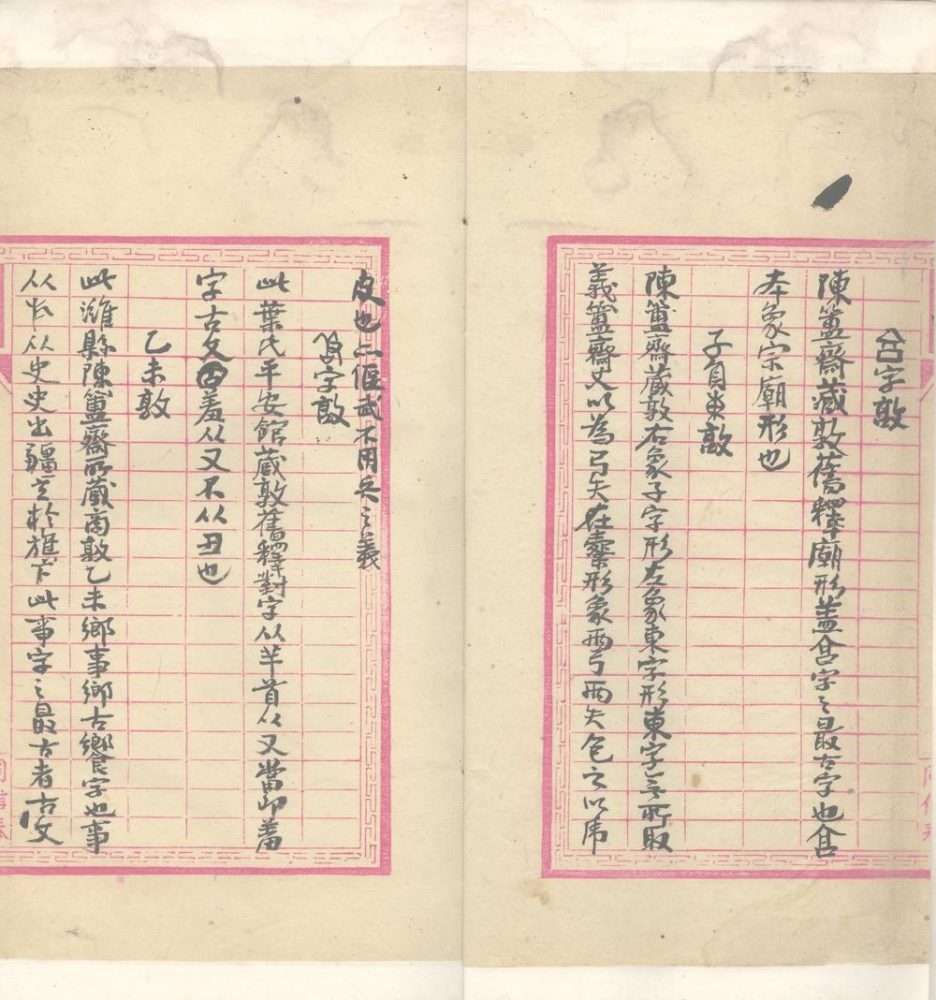 字敦
陳簠齋藏敦舊釋廟形蓋宫字之最古字也宫
本象宗廟形也
子負東敦
陳簠齋藏敦右象子字形左象東字形東字無所取
義簠齋又以為弓矢在櫜形象兩弓兩矢包之以虎
皮也亦偃武不用兵之義
字敦
此葉氏平安館藏敦舊釋對字从羊首从又當即羞
字古文羞从又不从丑也
乙未敦
此濰縣陳簠齋所藏商敦乙未鄉事鄉古饗字也事
从㫃从史史出疆立於旌下此事字之最古者古文